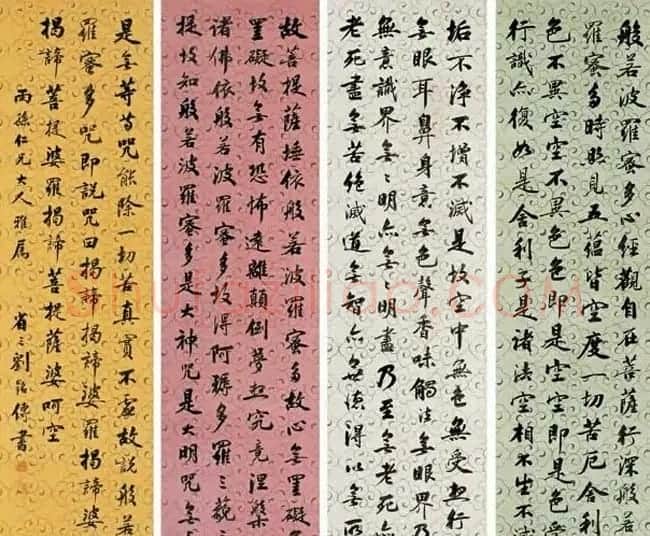 般若波羅蜜多心經觀自在菩薩行深般若
羅蜜多時照見五蘊皆空度一切苦厄舍利
色不異空空不異色色即是空空即是色受
行識亦復如是舍利子是諸法空相不生不滅
垢不淨不增不減是故空中無色無受想行
無眼耳鼻身意無色聲香味觸法無眼界乃
無意識界無無明亦無無明盡乃至無老死亦
老死盡無苦絕滅道無智亦無德得以無所
故菩提薩埵依般若波羅蜜多故心無罣礙
罣礙故無有恐怖遠離顛倒夢想究竟涅槃
諸佛依般若波羅蜜多故得阿耨多羅三藐三
提故知般若波羅蜜多是大神咒是大明咒無上
是無等等咒能除一切苦真實不虛故說般若
羅蜜多咒即說咒曰揭諦揭諦婆羅揭諦婆
揭諦菩提婆羅揭諦菩提薩婆呵空
丙孫仁兄大人雅屬
省三劉銘傳書